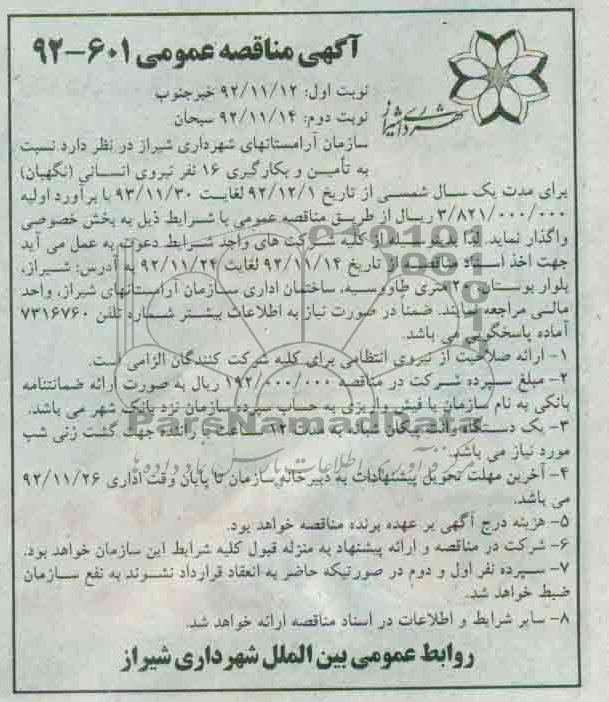 آگهی مناقصه عمومی ۶۰۱-۹۲
شهرداری شیراز
نوبت اول: ۹۲/۱۱/۱۲ خبرجنوب
نوبت دوم: ۹۲/۱۱/۱۴ سبحان
سازمان آرامستانهای شهرداری شیراز در نظر دارد نسبت
به تأمین و بکارگیری ۱۶ نفر نیروی انسانی (نگهبان)
برای مدت یک سال شمسی از تاریخ ۹۲/۱۲/۱ لغایت ۹۳/۱۱/۳۰ با برآورد اولیه
۳/۸۲۱/۰۰۰/۰۰۰ ریال از طریق مناقصه عمومی با شرایط ذیل به بخش خصوصی
واگذار نماید. لذا بدینوسیله از کلیه شرکت های واجد شرایط دعوت به عمل می آید
جهت اخذ اسناد مناقصه از تاریخ ۹۲/۱۱/۱۴ لغایت ۹۲/۱۱/۲۴ به آدرس: شیراز،
بلوار بوستان، ۲۰ متری طاووسیه، ساختمان اداری سازمان آرامستانهای شیراز، واحد
مالی مراجعه نمایند. ضمناً در صورت نیاز به اطلاعات بیشتر شماره تلفن ۷۳۱۶۷۶۰
آماده پاسخگویی می باشد.
۱- ارائه صلاحیت از نیروی انتظامی برای کلیه شرکت کنندگان الزامی است.
۲- مبلغ سپرده شرکت در مناقصه ۱۹۲/۰۰۰/۰۰۰ ریال به صورت ارائه ضمانتنامه
بانکی به نام سازمان یا فیش واریزی به حساب سپرده سازمان نزد بانک شهر می باشد.
۳- یک دستگاه وانت پیکان شبانه به مدت ۱۲ ساعت با راننده جهت گشت زنی شب
مورد نیاز می باشد.
۴- آخرین مهلت تحویل پیشنهادات به دبیرخانه سازمان تا پایان وقت اداری ۹۲/۱۱/۲۶
می باشد.
۵- هزینه درج آگهی بر عهده برنده مناقصه خواهد بود.
۶- شرکت در مناقصه و ارائه پیشنهاد به منزله قبول کلیه شرایط این سازمان خواهد بود.
۷- سپرده نفر اول و دوم در صورتیکه حاضر به انعقاد قرارداد نشوند به نفع سازمان
ضبط خواهد شد.
۸- سایر شرایط و اطلاعات در اسناد مناقصه ارائه خواهد شد.
روابط عمومی بین الملل شهرداری شیراز
ParsNamadData